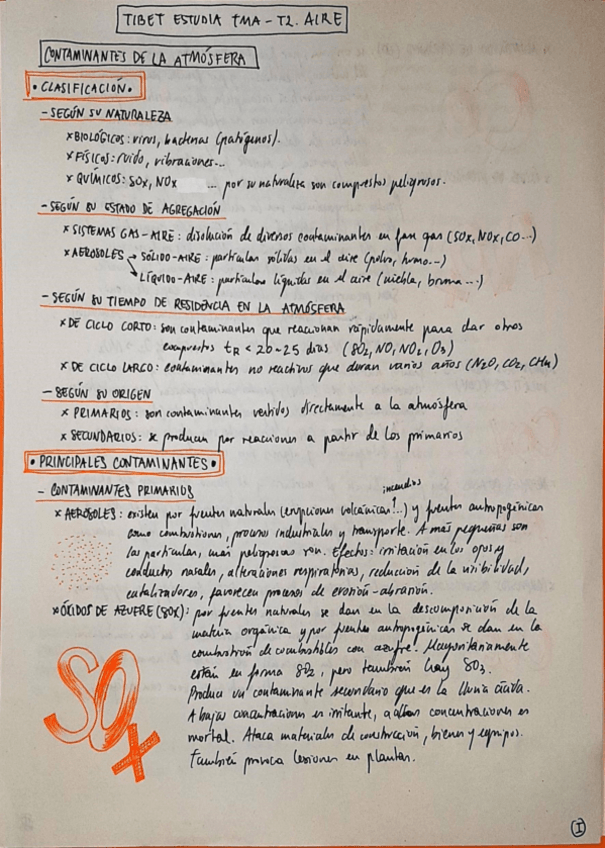 TIBET ESTUDIA TMA - T2. AIRE
CONTAMINANTES DE LA ATMÓSFERA
• CLASIFICACIÓN •
- SEGÚN SU NATURALEZA
x BIOLÓGICOS: virus, bacterias (patógenos).
x FÍSICOS: ruido, vibraciones...
x QUÍMICOS: SOx, NOx ... por su naturaleza son compuestos peligrosos.
- SEGÚN SU ESTADO DE AGREGACIÓN
x SISTEMAS GAS-AIRE: disolución de diversos contaminantes en fase gas (SOx, NOx, CO...)
x AEROSOLES → SÓLIDO-AIRE: partículas sólidas en el aire (polvo, humo...)
→ LÍQUIDO-AIRE: partículas líquidas en el aire (niebla, bruma...)
- SEGÚN SU TIEMPO DE RESIDENCIA EN LA ATMÓSFERA
x DE CICLO CORTO: son contaminantes que reaccionan rápidamente para dar otros
compuestos tR < 20~25 días (SO2, NO, NO2, O3)
x DE CICLO LARGO: contaminantes no reactivos que duran varios años (N2O, CO2, CH4)
- SEGÚN SU ORIGEN
x PRIMARIOS: son contaminantes vertidos directamente a la atmósfera
x SECUNDARIOS: se producen por reacciones a partir de los primarios
• PRINCIPALES CONTAMINANTES •
- CONTAMINANTES PRIMARIOS
incendios
x AEROSOLES: existen por fuentes naturales (erupciones volcánicas, ...) y fuentes antropogénicas
como combustiones, procesos industriales y transporte. A más pequeñas son
las partículas, más peligrosas son. Efectos: irritación en los ojos y
conductos nasales, alteraciones respiratorias, reducción de la visibilidad,
catalizadores, favorecen procesos de erosión-abrasión.
x ÓXIDOS DE AZUFRE (SOx): por fuentes naturales se dan en la descomposición de la
materia orgánica y por fuentes antropogénicas se dan en la
combustión de combustibles con azufre. Mayoritariamente
están en forma SO2, pero también hay SO3.
Produce un contaminante secundario que es la lluvia ácida.
A bajas concentraciones es irritante, a altas concentraciones es
mortal. Ataca materiales de construcción, bienes y equipos.
También provoca lesiones en plantas.
SOx
I